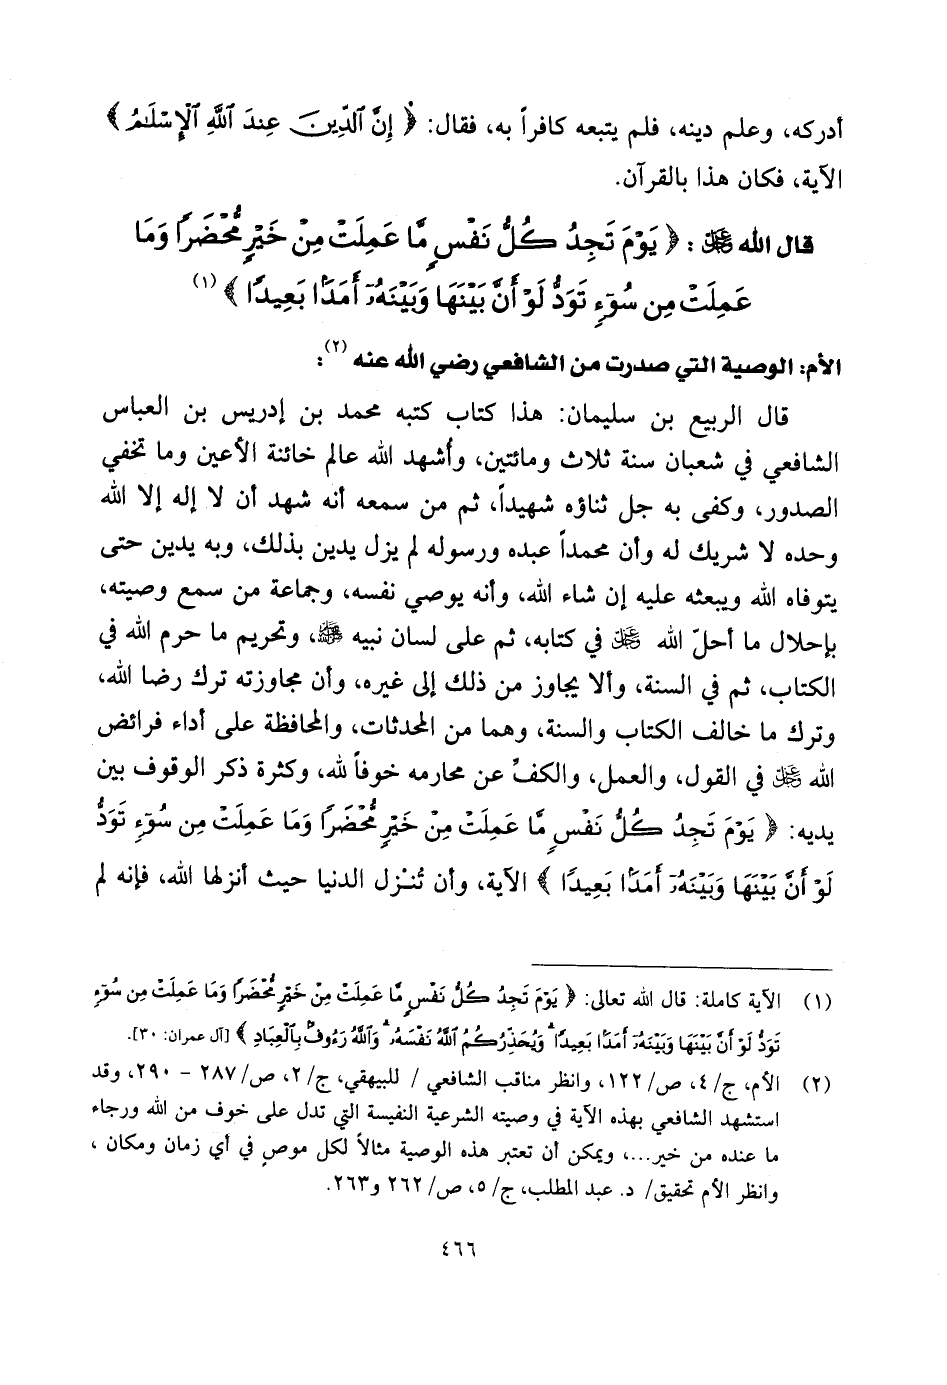 أدركه، وعلم دينه، فلم يتبعه كافراً به، فقال: ﴿ إِنَّ ٱلدِّينَ عِندَ ٱللَّهِ ٱلْإِسْلَـٰمُ ﴾
الآية، فكان هذا بالقرآن.
قال الله ﷻ : ﴿ يَوْمَ تَجِدُ كُلُّ نَفْسٍ مَّا عَمِلَتْ مِنْ خَيْرٍ مُّحْضَرًا وَمَا
عَمِلَتْ مِن سُوٓءٍ تَوَدُّ لَوْ أَنَّ بَيْنَهَا وَبَيْنَهُۥٓ أَمَدًۢا بَعِيدًا ﴾ (١)
الأم: الوصية التي صدرت من الشافعي رضي الله عنه (٢):
قال الربيع بن سليمان: هذا كتاب كتبه محمد بن إدريس بن العباس
الشافعي في شعبان سنة ثلاث ومائتين، وأُشهد الله عالم خائنة الأعين وما تخفي
الصدور، وكفى به جل ثناؤه شهيداً، ثم من سمعه أنه شهد أن لا إله إلا الله
وحده لا شريك له وأن محمداً عبده ورسوله لم يزل يدين بذلك، وبه يدين حتى
يتوفاه الله ويبعثه عليه إن شاء الله، وأنه يوصي نفسه، وجماعة من سمع وصيته،
بإحلال ما أحلّ الله ﷻ في كتابه، ثم على لسان نبيه ﷺ، وتحريم ما حرم الله في
الكتاب، ثم في السنة، وألا يجاوز من ذلك إلى غيره، وأن مجاوزته ترك رضا الله،
وترك ما خالف الكتاب والسنة، وهما من المحدثات، والمحافظة على أداء فرائض
الله ﷻ في القول، والعمل، والكفّ عن محارمه خوفاً لله، وكثرة ذكر الوقوف بين
يديه: ﴿ يَوْمَ تَجِدُ كُلُّ نَفْسٍ مَّا عَمِلَتْ مِنْ خَيْرٍ مُّحْضَرًا وَمَا عَمِلَتْ مِن سُوٓءٍ تَوَدُّ
لَوْ أَنَّ بَيْنَهَا وَبَيْنَهُۥٓ أَمَدًۢا بَعِيدًا ﴾ الآية، وأن تُنْزل الدنيا حيث أنزلها الله، فإنه لم
(١) الآية كاملة: قال الله تعالى: ﴿ يَوْمَ تَجِدُ كُلُّ نَفْسٍ مَّا عَمِلَتْ مِنْ خَيْرٍ مُّحْضَرًا وَمَا عَمِلَتْ مِن سُوٓءٍ
تَوَدُّ لَوْ أَنَّ بَيْنَهَا وَبَيْنَهُۥٓ أَمَدًۢا بَعِيدًا ۗ وَيُحَذِّرُكُمُ ٱللَّهُ نَفْسَهُۥ ۗ وَٱللَّهُ رَءُوفٌۢ بِٱلْعِبَادِ ﴾ [آل عمران: ٣٠].
(٢) الأم، ج/٤، ص/١٢٢، وانظر مناقب الشافعي / للبيهقي، ج/٢، ص/٢٨٧ - ٢٩٠، وقد
استشهد الشافعي بهذه الآية في وصيته الشرعية النفيسة التي تدل على خوف من الله ورجاء
ما عنده من خير...، ويمكن أن تعتبر هذه الوصية مثالاً لكل موصٍ في أي زمان ومكان ،
وانظر الأم تحقيق/ د. عبد المطلب، ج/٥، ص/٢٦٢ و٢٦٣.
٤٦٦